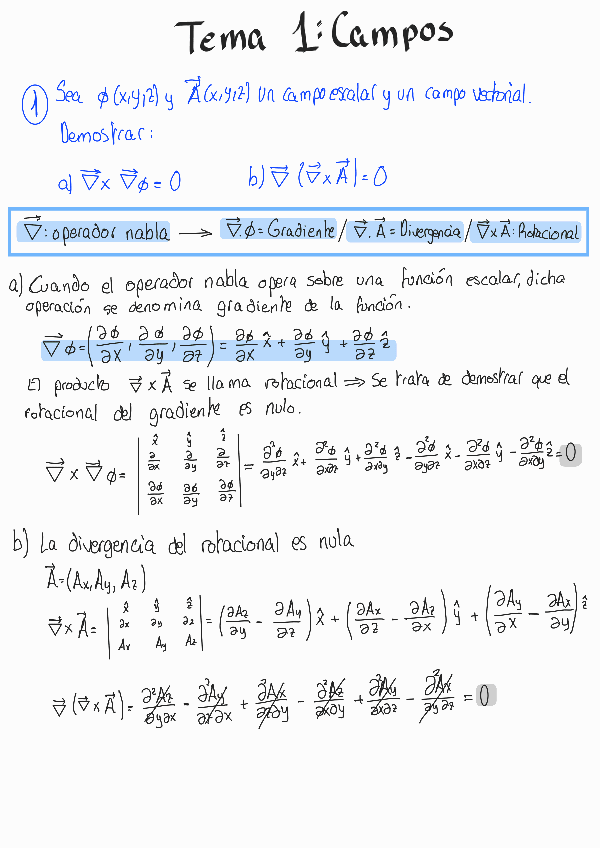 Tema 1: Campos
① Sea φ(x,y,z) y A⃗(x,y,z) un campo escalar y un campo vectorial.
Demostrar:
a) ∇⃗x ∇⃗φ = 0 b) ∇⃗ (∇⃗xA⃗) = 0
∇⃗: operador nabla → ∇⃗.φ = Gradiente / ∇⃗.A⃗ = Divergencia / ∇⃗xA⃗: Rotacional
a) Cuando el operador nabla opera sobre una función escalar, dicha
operación se denomina gradiente de la función.
∇⃗φ = (∂φ/∂x, ∂φ/∂y, ∂φ/∂z) = ∂φ/∂x x̂ + ∂φ/∂y ŷ + ∂φ/∂z ẑ
El producto ∇⃗xA⃗ se llama rotacional ⇒ Se trata de demostrar que el
rotacional del gradiente es nulo.
∇⃗ x ∇⃗φ = | x̂ ŷ ẑ ; ∂/∂x ∂/∂y ∂/∂z ; ∂φ/∂x ∂φ/∂y ∂φ/∂z | = ∂²φ/∂y∂z x̂ + ∂²φ/∂x∂z ŷ + ∂²φ/∂x∂y ẑ - ∂²φ/∂y∂z x̂ - ∂²φ/∂x∂z ŷ - ∂²φ/∂x∂y ẑ = 0
b) La divergencia del rotacional es nula
A⃗ = (Ax, Ay, Az)
∇⃗xA⃗ = | x̂ ŷ ẑ ; ∂x ∂y ∂z ; Ax Ay Az | = (∂Az/∂y - ∂Ay/∂z) x̂ + (∂Ax/∂z - ∂Az/∂x) ŷ + (∂Ay/∂x - ∂Ax/∂y) ẑ
∇⃗ (∇⃗xA⃗) = ∂²Az/∂y∂x - ∂²Ay/∂z∂x + ∂²Ax/∂z∂y - ∂²Az/∂x∂y + ∂²Ay/∂x∂z - ∂²Ax/∂y∂z = 0